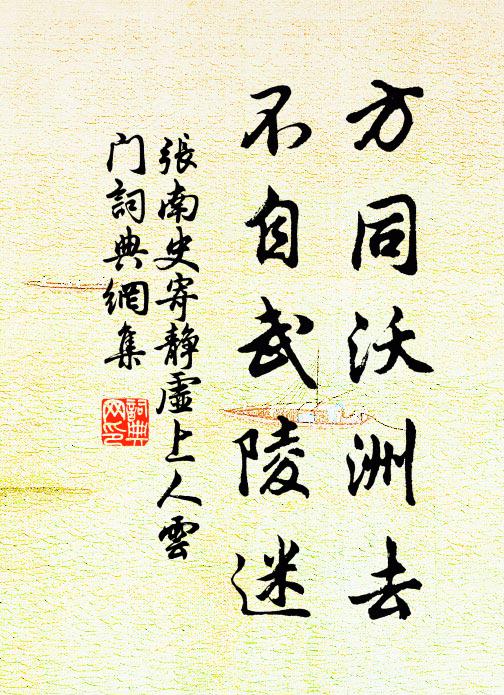 方同沃洲去
不自武陵迷
張南史寄静虛上人雲
门詞典網集
詞典
网印